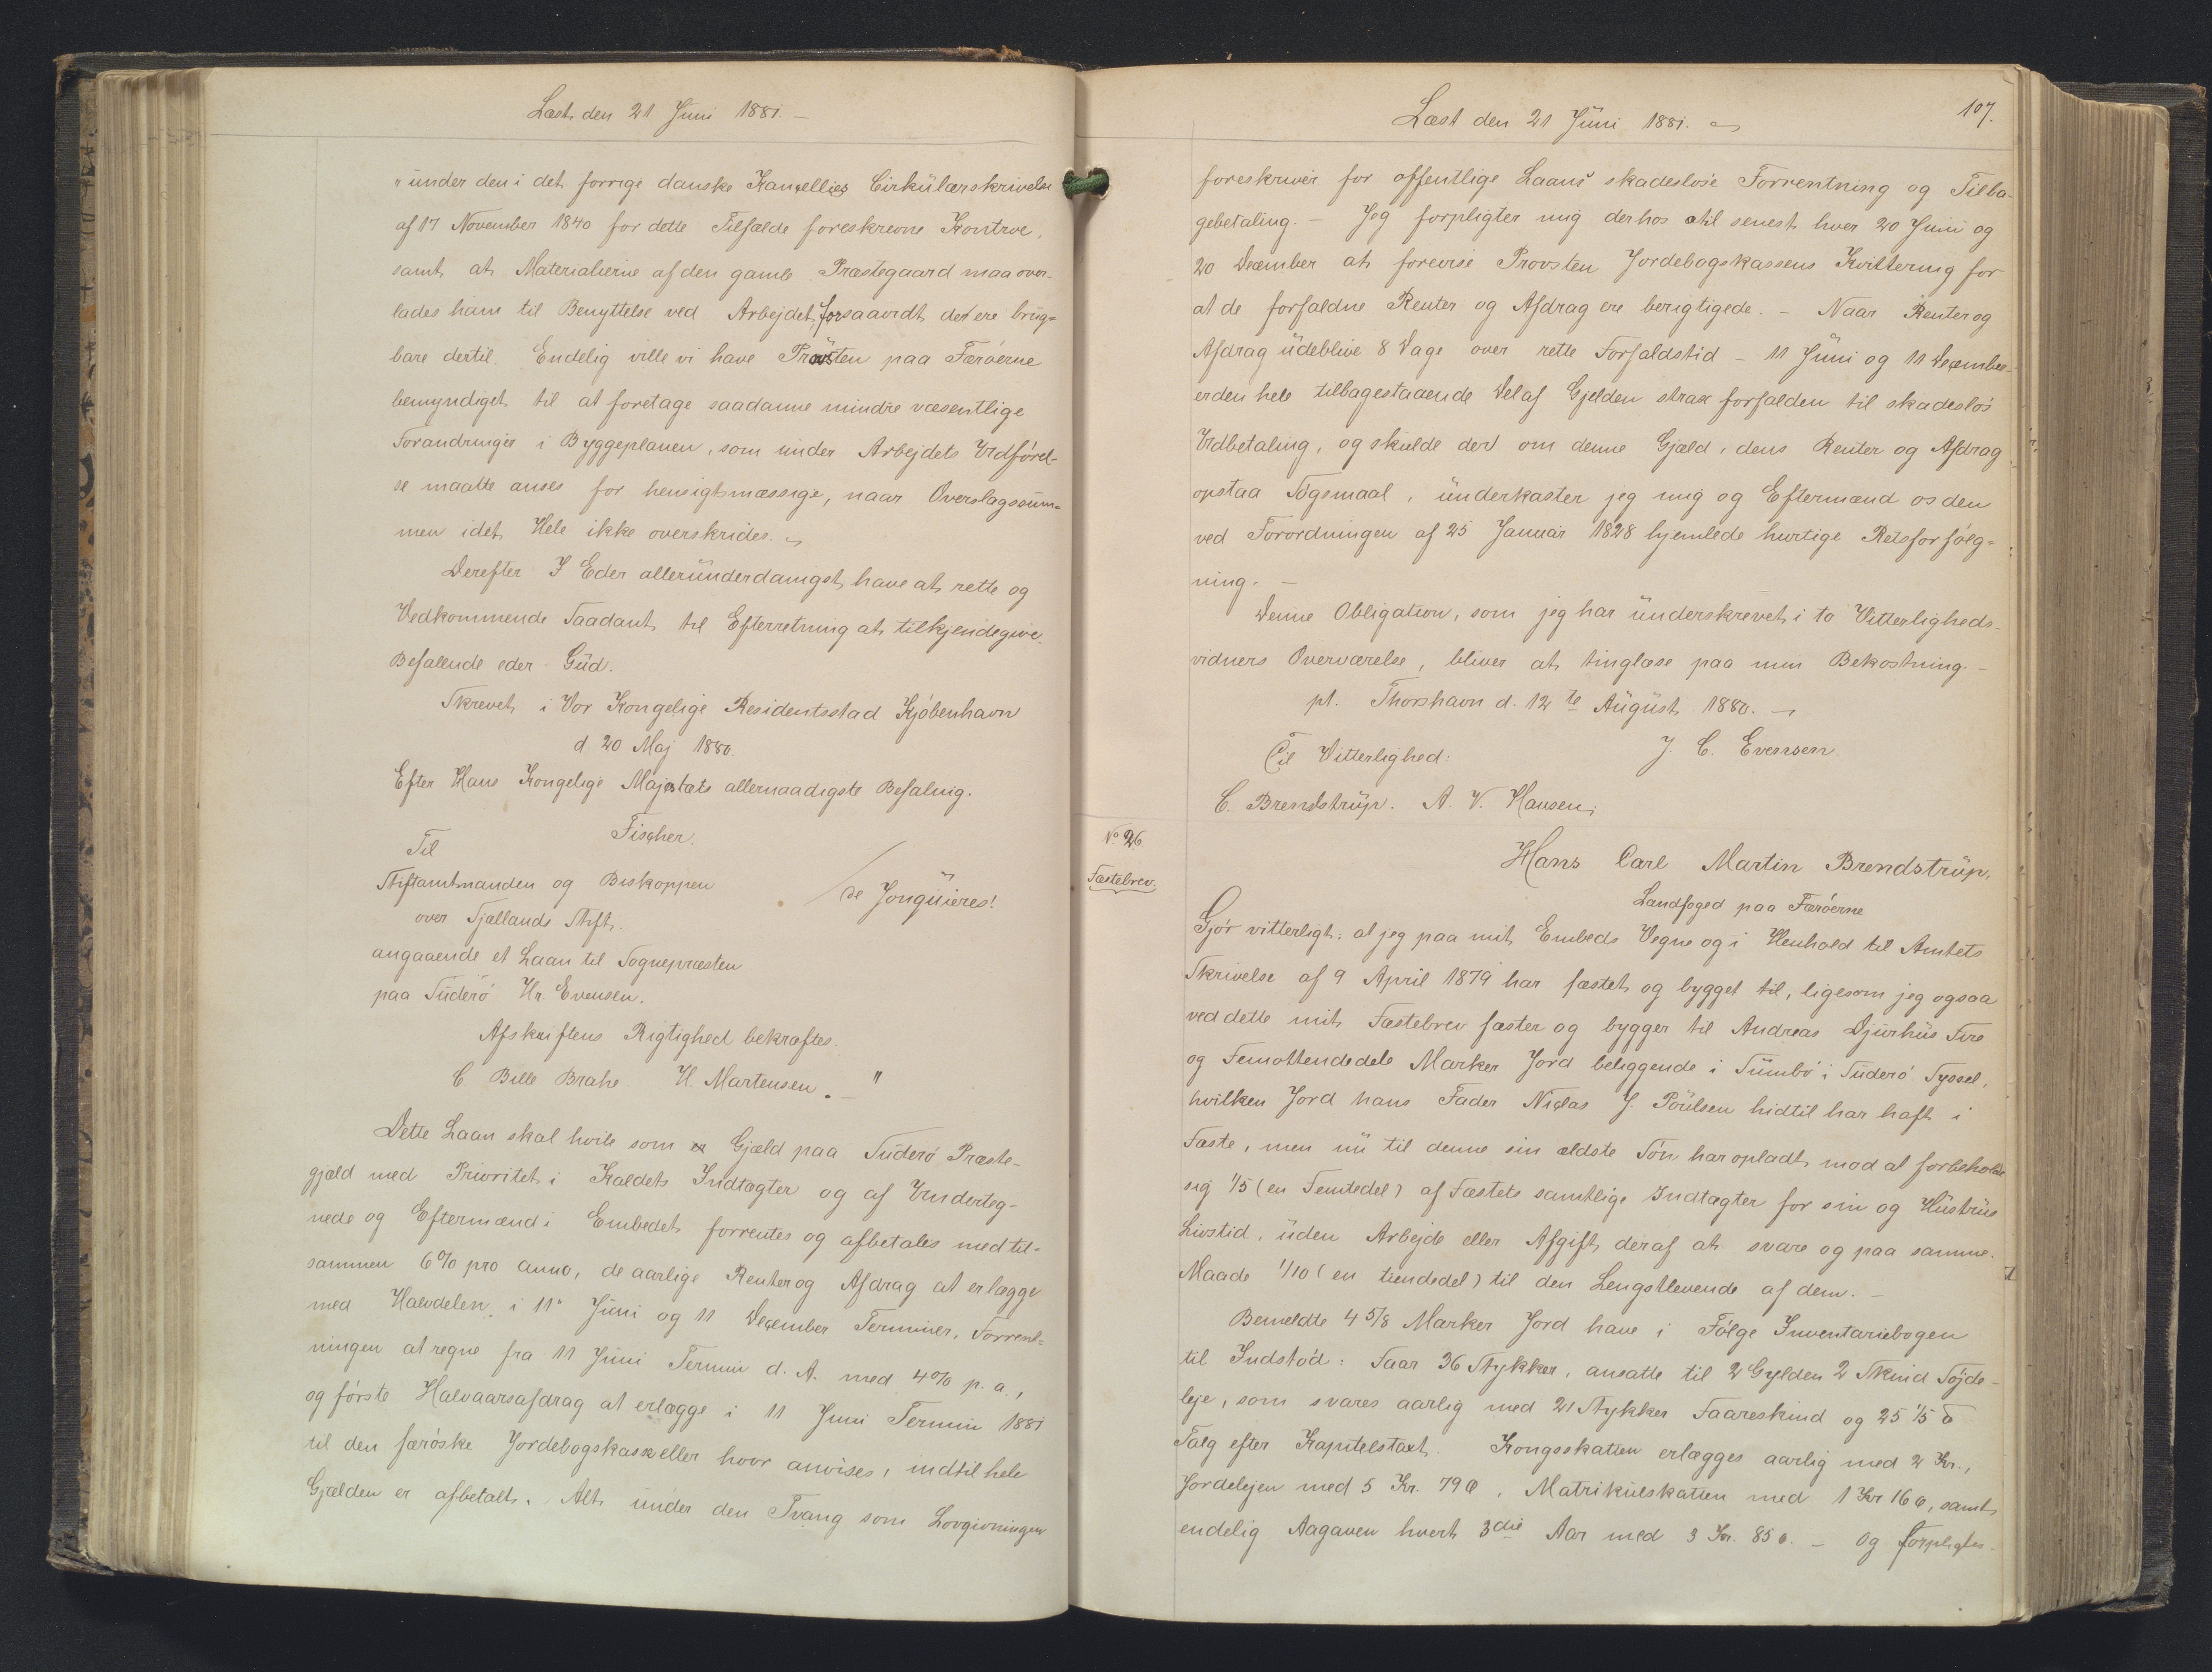 Læst den 21 Juni 1881. –
"under den i det forrige danske Kancellies Cirkülærskrivelse
af 17 November 1840 for dette Tilfælde foreskrevne Kontroe,
samt at Materialierne af den gamle Præstegaard maa over-
lades ham til Benyttelse ved Arbejdet, forsaavidt det ere brüg-
bare dertil. Endelig ville vi have Provsten paa Færöerne
bemyndiget til at foretage saadanne mindre væsentlige
Forandringer i Byggeplanen, som ünder Arbejdets Udförel-
se maatte anses for hensigtsmæssige, naar Overslagssüm-
men idet Hele ikke overskrides. –
Derefter I Eder alleründerdanigst have at rette og
Vedkommende Saadant til Efterretning at tilkjendegive.
Befalende eder Güd.
Skrevet i Vor Kongelige Residentsstad Kjöbenhavn
d. 20 Maj 1880.
Efter Hans Kongelige Majestæts allernaadigste Befaling.
Fischer.
Til
Stiftamtmanden og Biskoppen
over Sjællands Stift.
/ de Jonqüieres!
angaaende et Laan til Sognepræsten
paa Süderö Hr. Evensen.
Afskriftens Rigtighed bekræftes.
C. Bille Brahe. H. Martensen. – "
Dette Laan skal hvile som Gjæld paa Süderö Præste-
gjæld med Prioritet i Kaldets Indtægter og af Underteg-
nede og Eftermænd i Embedet forrentes og afbetales med til-
sammen 6% pro anno, de aarlige Renter og Afdrag at erlægge
med Halvdelen i 11 Jüni og 11 December Terminer, Forrent-
ningen at regne fra 11 Jüni Termin d. A. med 4% p. a.,
og förste Halvaarsafdrag at erlægge i 11 Juni Termin 1881
til den færöske Jordebogskasse eller hvor anvises, indtil hele
Gjælden er afbetalt. Alt ünder den Tvang som Lovgivningen
107.
Læst den 21 Jüni 1881. –
foreskriver for offentlige Laans skadeslöse Forrentning og Tilba-
gebetaling. – Jeg forpligter mig derhos til senest hver 20 Juni og
20 December at forevise Provsten Jordebogskassens Kvittering for
at de forfaldne Renter og Afdrag ere berigtigede. – Naar Renter og
Afdrag üdeblive 8 Dage over rette Forfaldstid – 11 Jüni og 11 December –
er den hele tilbagestaaende Del af Gjelden strax forfalden til skadeslös
Udbetaling, og skulde der om denne Gjæld, dens Renter og Afdrag
opstaa Sögsmaal, ünderkaster jeg mig og Eftermænd os den
ved Forordningen af 25 Januar 1828 hjemlede hurtige Retsforfölg-
ning. –
Denne Obligation, som jeg har ünderskrevet i to Vitterligheds-
vidners Overværelse, bliver at tinglæse paa min Bekostning. –
pt. Thorshavn d. 12te Aügüst 1880. –
J. C. Evensen
Til Vitterlighed:
C. Brendstrüp. A. V. Hansen.
No 26
Fæstebrev.
Hans Carl Martin Brendstrüp,
Landfoged paa Færöerne
Gjör vitterligt: at jeg paa mit Embeds Vegne og i Henhold til Amtets
Skrivelse af 9 April 1879 har fæstet og bygget til, ligesom jeg ogsaa
ved dette mit Fæstebrev fæster og bygger til Andreas Djurhüs Fire
og Femottendedele Marker Jord beliggende i Sümbö i Süderö Syssel,
hvilken Jord hans Fader Niclas J. Poülsen hidtil har haft i
Fæste, men nü til denne sin ældste Sön har opladt mod at forbeholde
sig 1/5 (en Femtedel) af Fæstets samtlige Indtægter for sin og Hüstrüs
Livstid, üden Arbejde eller Afgift deraf at svare og paa samme
Maade 1/10 (en tiendedel) til den Længstlevende af dem. –
Bemeldte 4 5/8 Marker Jord have i Fölge Inventariebogen
til Indstöd: Faar 36 Stykker, ansatte til 2 Gylden 2 Skind Söjde-
leje, som svares aarlig med 21 Stykker Faareskind og 25 1/5 ℔
Talg efter Kapitelstaxt. Kongsskatten erlægges aarlig med 2 Kr.,
Jordelejen med 5 Kr. 79 Ø, Matrikülskatten med 1 Kr 16 Ø, samt
endelig Aagaven hvert 3die Aar med 3 Kr. 85 Ø. – Og forpligtes